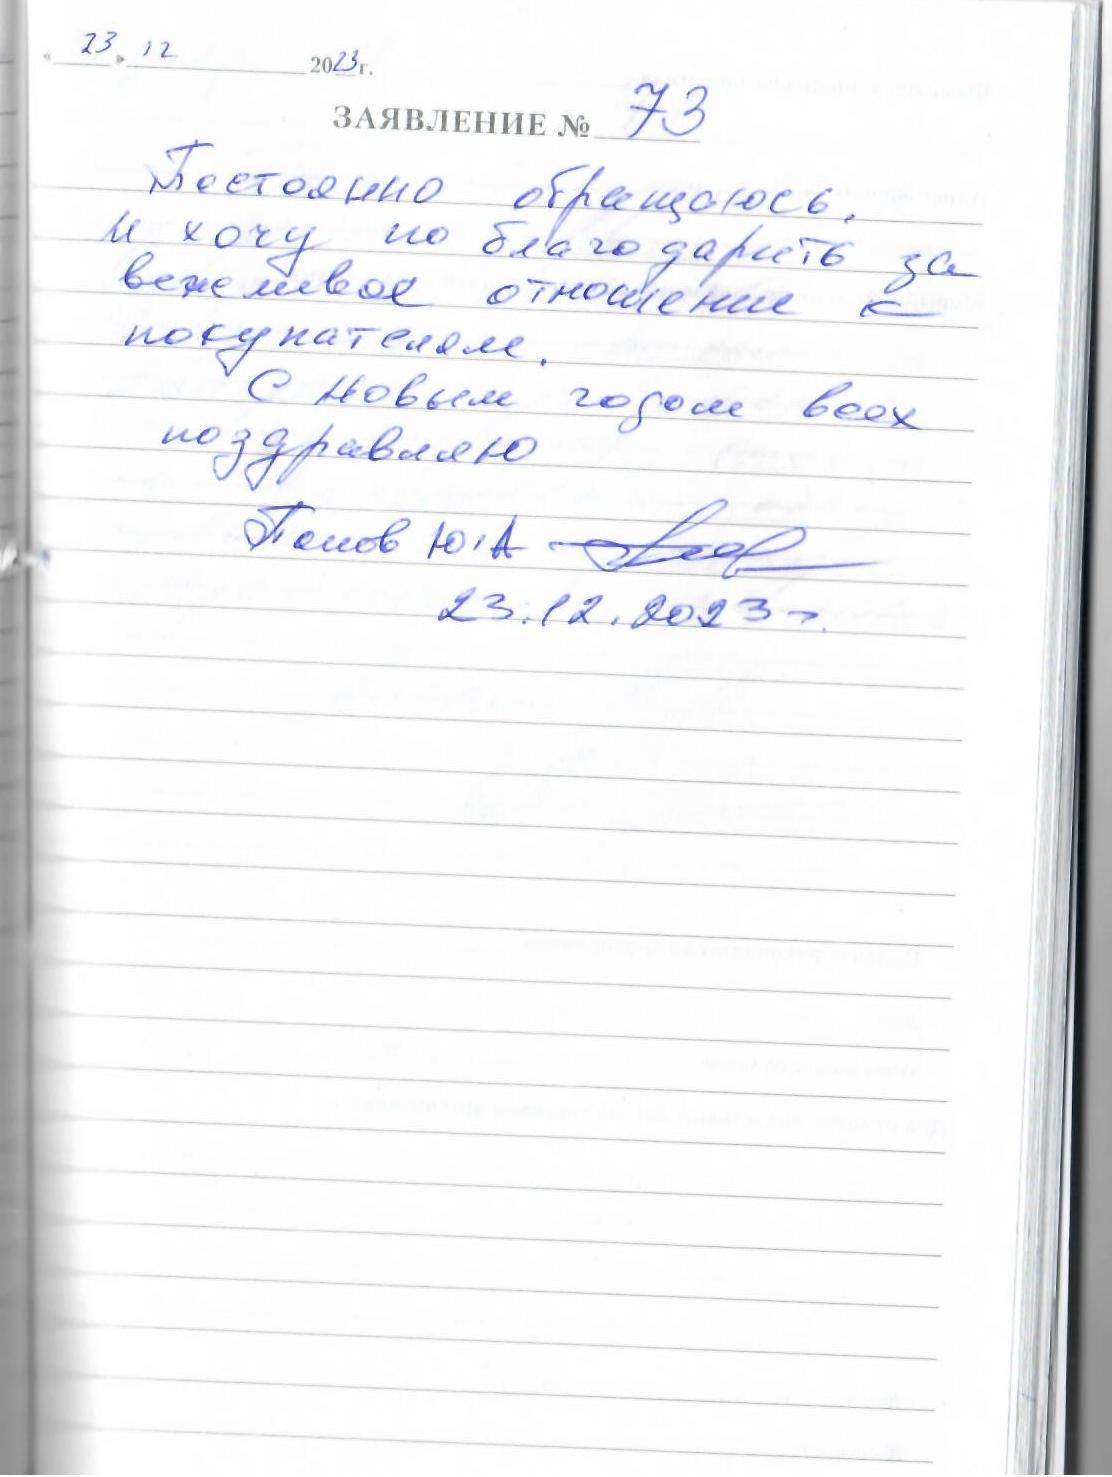 « 23 » 12 2023 г.
ЗАЯВЛЕНИЕ № 73
Постоянно обращаюсь.
И хочу по благодарить за
вежливое отношение к
покупателям.
С Новым годом всех
поздравляю
Ю.А
23.12.2023 г.